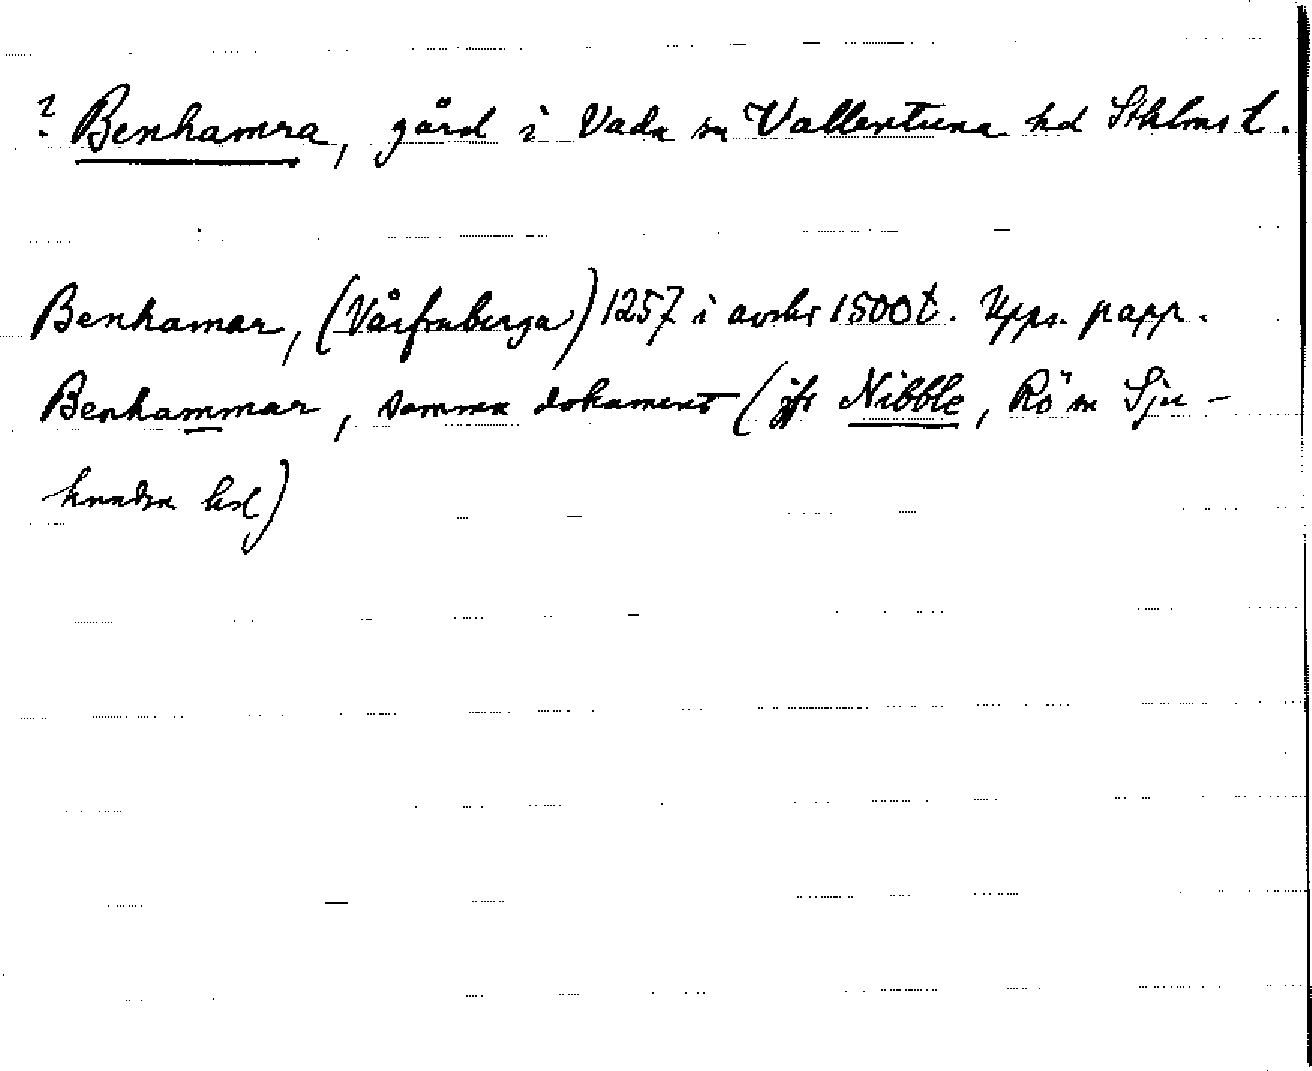 ? Benhamra, gård i Vada sn Vallentuna hd Sthlms l.
Benhamar, (Vårfruberga) 1257 i avskr 1500t. Upps. papp.
Benhammar, samma dokument (jfr Nibble, Rö sn Sju-
hundra hd)